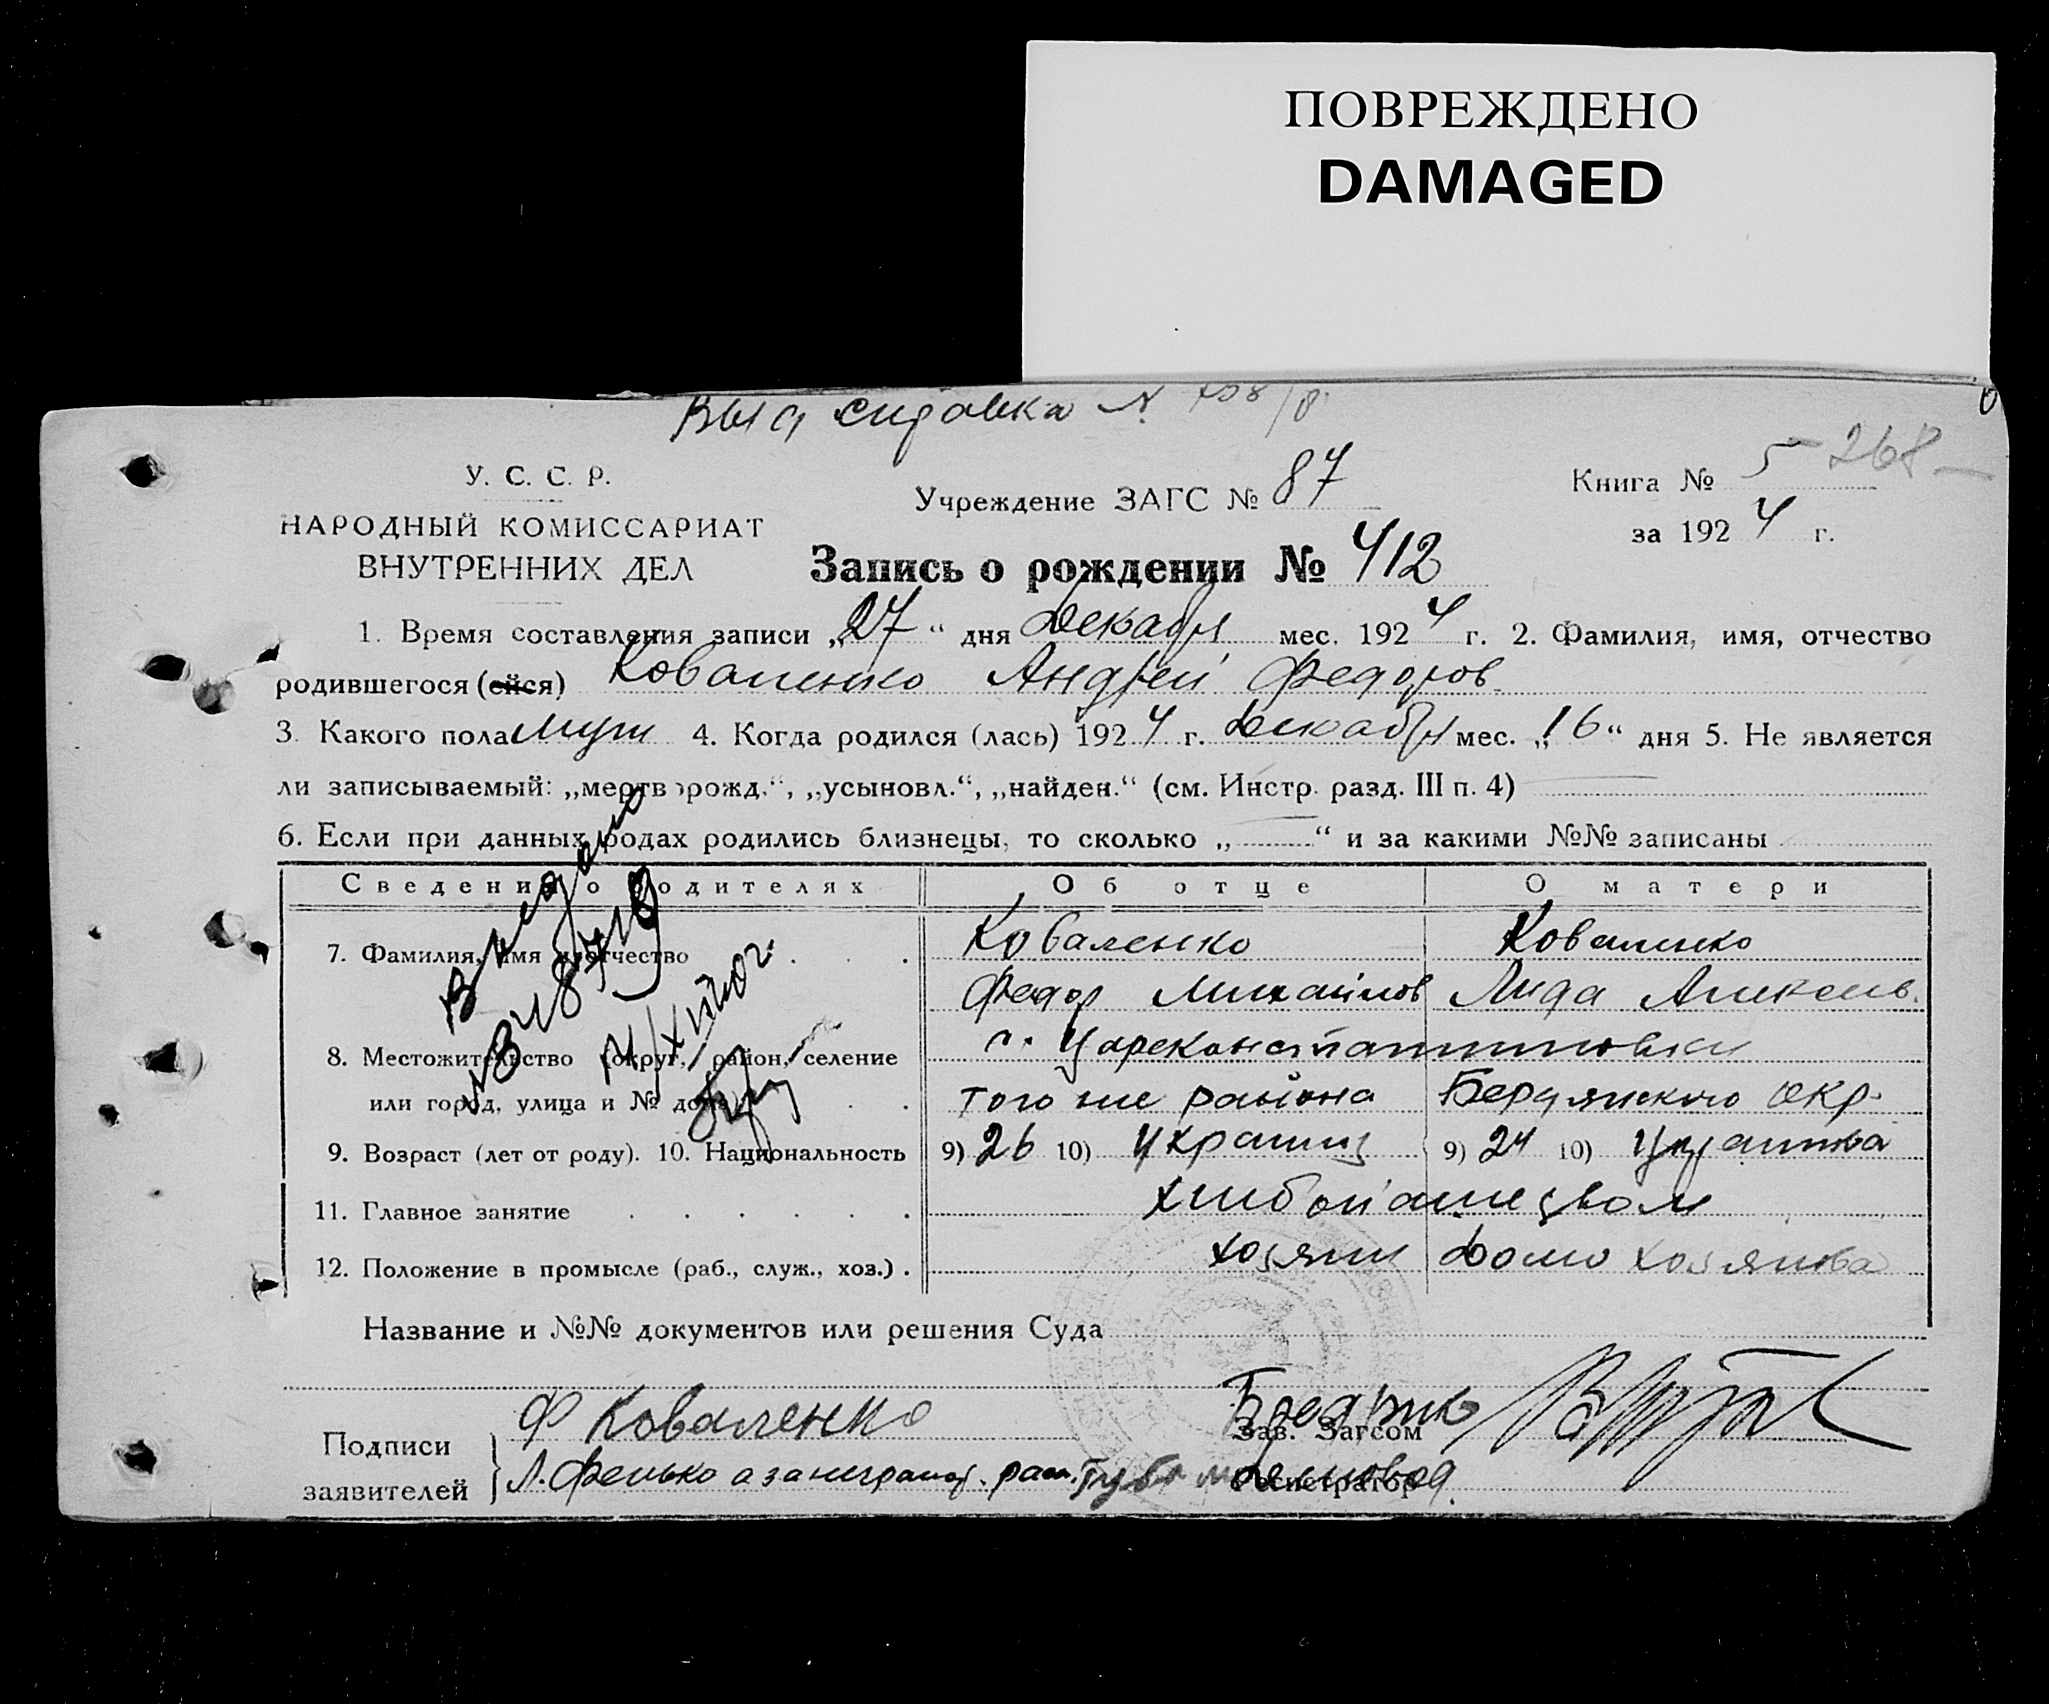 ПОВРЕЖДЕНО
DAMAGED
Выд справка №
У. С. С. Р.
НАРОДНЫЙ КОМИССАРИАТ
ВНУТРЕННИХ ДЕЛ
Учреждение ЗАГС № 87
Книга № 5 268
за 1924 г.
Запись о рождении № 412
1. Время составления записи „27“ дня Декабря мес. 1924 г. 2. Фамилия, имя, отчество
родившегося (ейся) Коваленко Андрей Федоров
3. Какого пола муж 4. Когда родился (лась) 1924 г. Декабря мес. „16“ дня 5. Не является
ли записываемый: „мертворожд.“, „усыновл.“, „найден.“ (см. Инстр. разд. III п. 4)
6. Если при данных родах родились близнецы, то сколько „ “ и за какими №№ записаны
Сведения о родителях Об отце О матери
7. Фамилия, имя и отчество Коваленко Коваленко
Федор Михайлов Лида Алексеев.
8. Местожительство (округ, район, селение с. Цареконстантиновки
или город, улица и № дома) того же района Бердянского окр.
9. Возраст (лет от роду). 10. Национальность 9) 26 10) украинец 9) 24 10) украинка
11. Главное занятие хлебопашеством
12. Положение в промысле (раб., служ., хоз.) хозяин домохозяйка
Название и №№ документов или решения Суда
Подписи заявителей
Ф Коваленко
Зав. Загсом
Л. Фенько а за неграмот. расп.
Регистратор